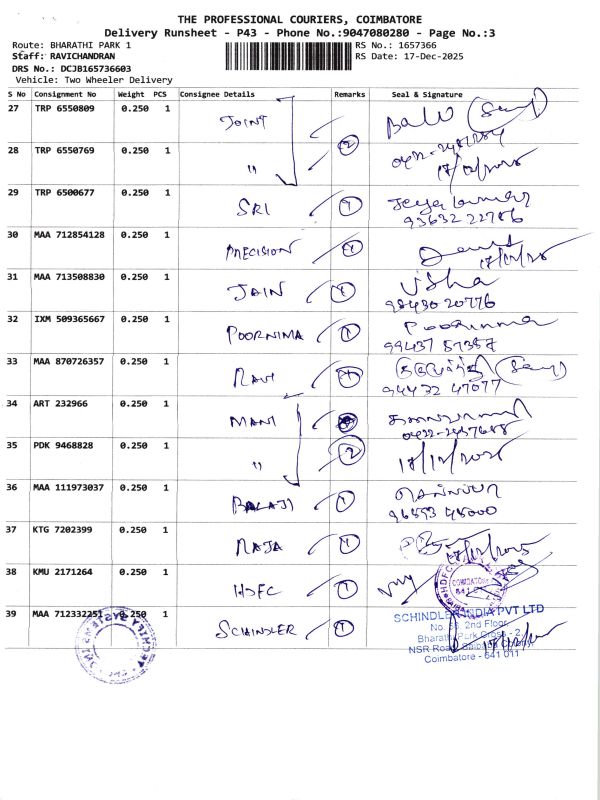 THE PROFESSIONAL COURIERS, COIMBATORE
Delivery Runsheet - P43 - Phone No.:9047080280 - Page No.:3
Route: BHARATHI PARK 1
RS No.: 1657366
Staff: RAVICHANDRAN
RS Date: 17-Dec-2025
DRS No.: DCJB165736603
Vehicle: Two Wheeler Delivery
S No Consignment No Weight PCS Consignee Details Remarks Seal & Signature
27 TRP 6550809 0.250 1 JOINT 2
28 TRP 6550769 0.250 1 "
29 TRP 6500677 0.250 1 SRI 1
93632 22786
30 MAA 712854128 0.250 1 PRECISION 1
31 MAA 713508830 0.250 1 JAIN 1 Usha
98430 20776
32 IXM 509365667 0.250 1 POORNIMA 1 Poornima
99437 57357
33 MAA 870726357 0.250 1 RAVI 1
94432 47077
34 ART 232966 0.250 1 MANI
35 PDK 9468828 0.250 1 " 2
36 MAA 111973037 0.250 1 BALAJI 1
96593 45000
37 KTG 7202399 0.250 1 RAJA 1
38 KMU 2171264 0.250 1 HDFC 1
HDFC
COIMBATORE
39 MAA 712332251 0.250 1 SCHINDLER 1
SCHINDLER INDIA PVT LTD
2nd Floor
Bharathi Park Cross - 2
NSR Road
Coimbatore - 641 011